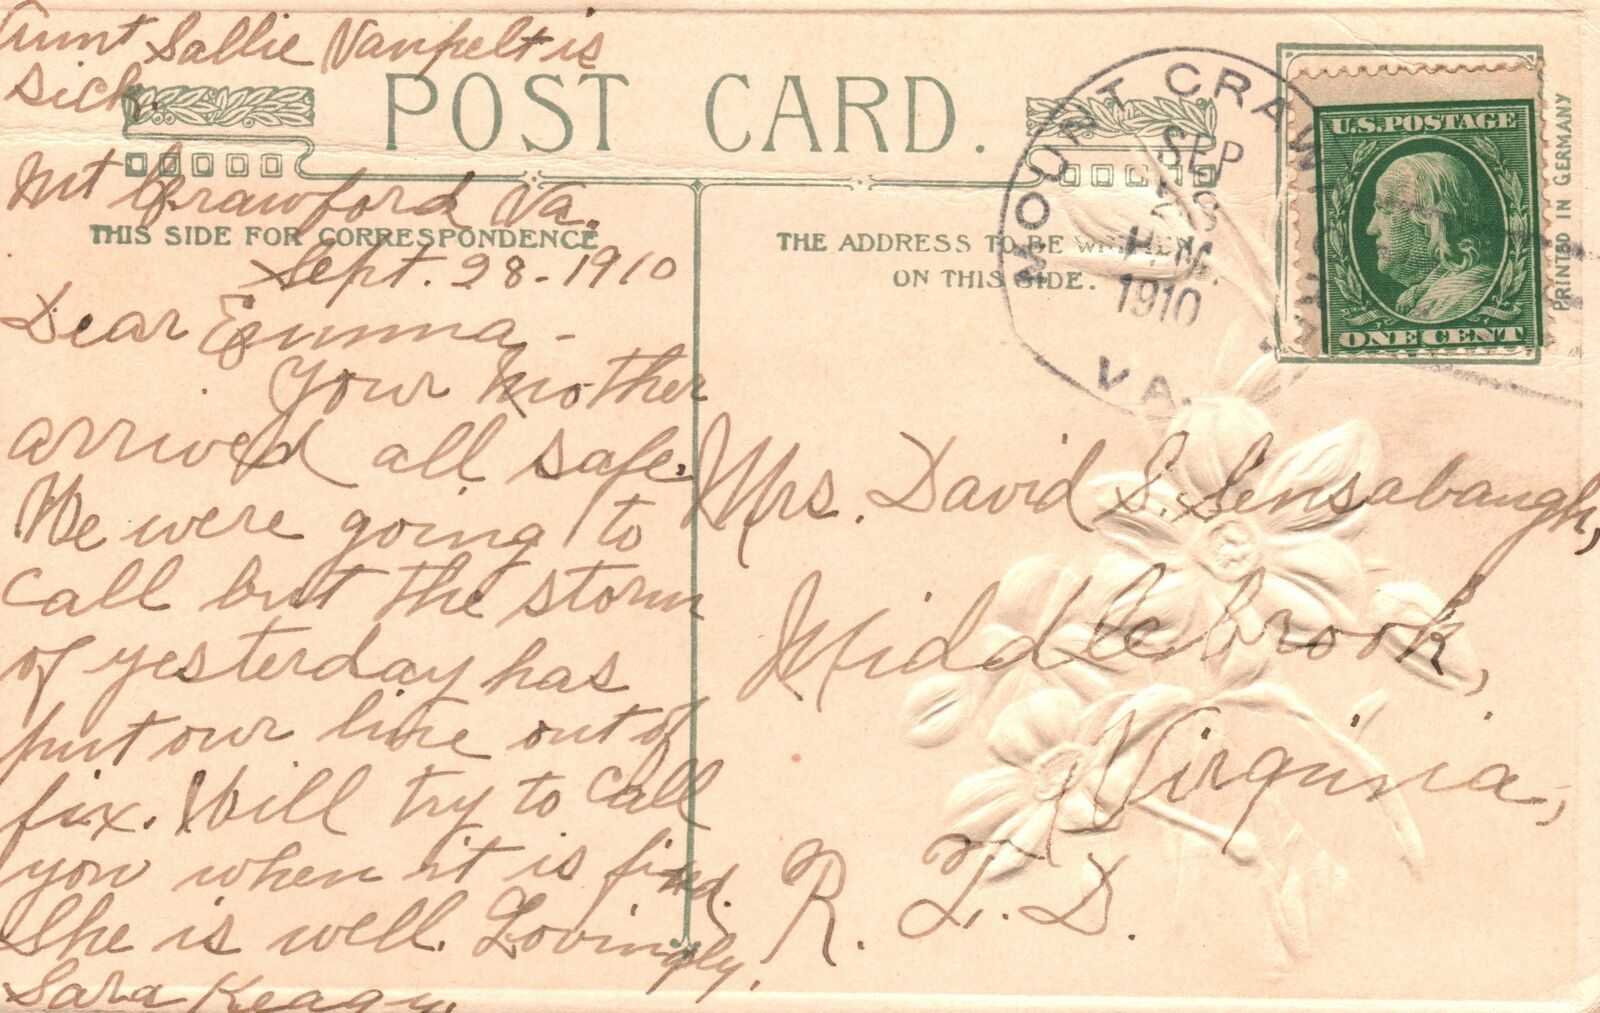 Aunt Sallie Vanpelt is
sick.
POST CARD.
Mt Crawford Va.
THIS SIDE FOR CORRESPONDENCE
Sept. 28-1910
Dear Emma-
Your Mother
arrived all safe.
We were going to
call but the storm
of yesterday has
put our line out of
fix. Will try to call
you when it is fixed.
She is well. Lovingly,
Sara Keagy.
THE ADDRESS TO BE WRITTEN
ON THIS SIDE.
MOUNT CRAWFORD
SEP
28
M.
1910
VA.
U.S. POSTAGE
ONE CENT
PRINTED IN GERMANY
Mrs. David S. Sensabaugh,
Middlebrook,
Virginia,
R. F. D.